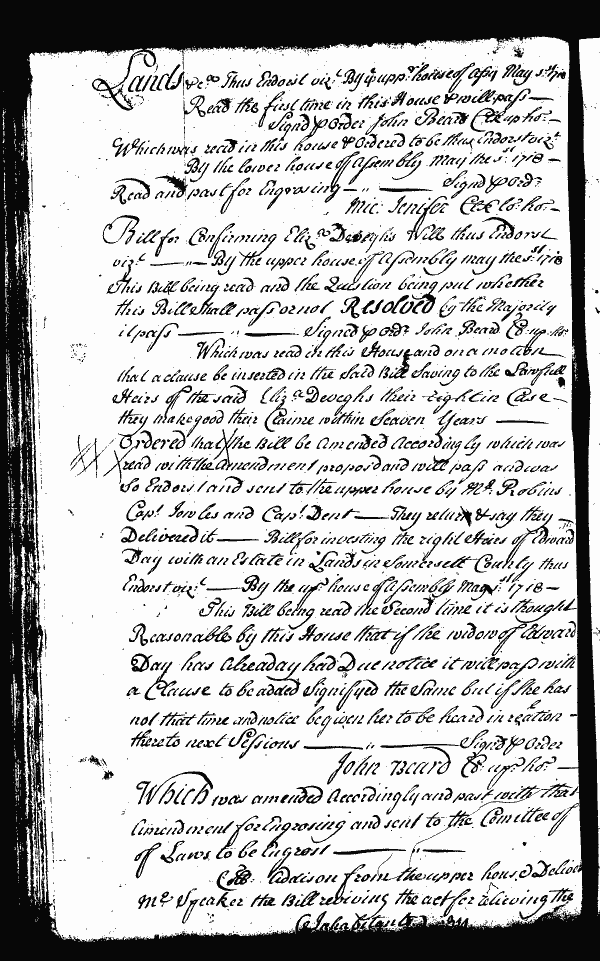 Lands &c.a Thus Endorst viz.t By ye upp.r house of Assy May 1.st 1718
Read the first time in this House & will pass —
Signd p Order John Beard Clk up ho.—
Which was read in this house & Ordered to be thus Endorst viz.t
By the lower house of Assembly may the 1.st 1718 —
Read and past for Engrosing — Signd p Ord.r
Mic. Jenifer Clk lo. ho.—
Bill for Confirming Eliz.a Deveghs Will thus Endorst
viz.t — By the upper house of Assembly may the 1.st 1718
This Bill being read and the Question being put whether
this Bill shall pass or not, Resolved by the Majority
it pass — Signed p ord.r John Beard Cl. up. ho.
Which was read in this House and on a motion
that a clause be inserted in the Said Bill Saving to the Lawfull
Heirs of the said Eliz.a Deveghs their right in Case —
they make good their Claime within Seaven Years —
Ordered that the Bill be Amended Accordingly which was
read with the Amendment propos'd and will pass and was
So Endorst and sent to the upper house by M.r Robins
Cap.t Jowles and Cap.t Dent — They return & say they
Delivered it — Bill for investing the right Heirs of Edward
Day with an Estate in Lands in Somersett County thus
Endorst viz.t — By the up.r house of Assembly May 1.st 1718 —
This Bill being read the Second time it is thought
Reasonable by this House that if the widow of Edward
Day has Alreaday had Due notice it will pass with
a Clause to be added Signifyed the Same but if She has
not that time and notice be given her to be heard in relation
thereto next Sessions — Sign'd p Order
John Beard Cl. up.r ho.—
Which was amended Accordingly and past with that
Amendment for Engrosing and sent to the Comittee of
of Laws to be Engrost —
Coll. Addison from the upper house Deliver
M.r Speaker the Bill reviving the act for relieving the
Inhabitants